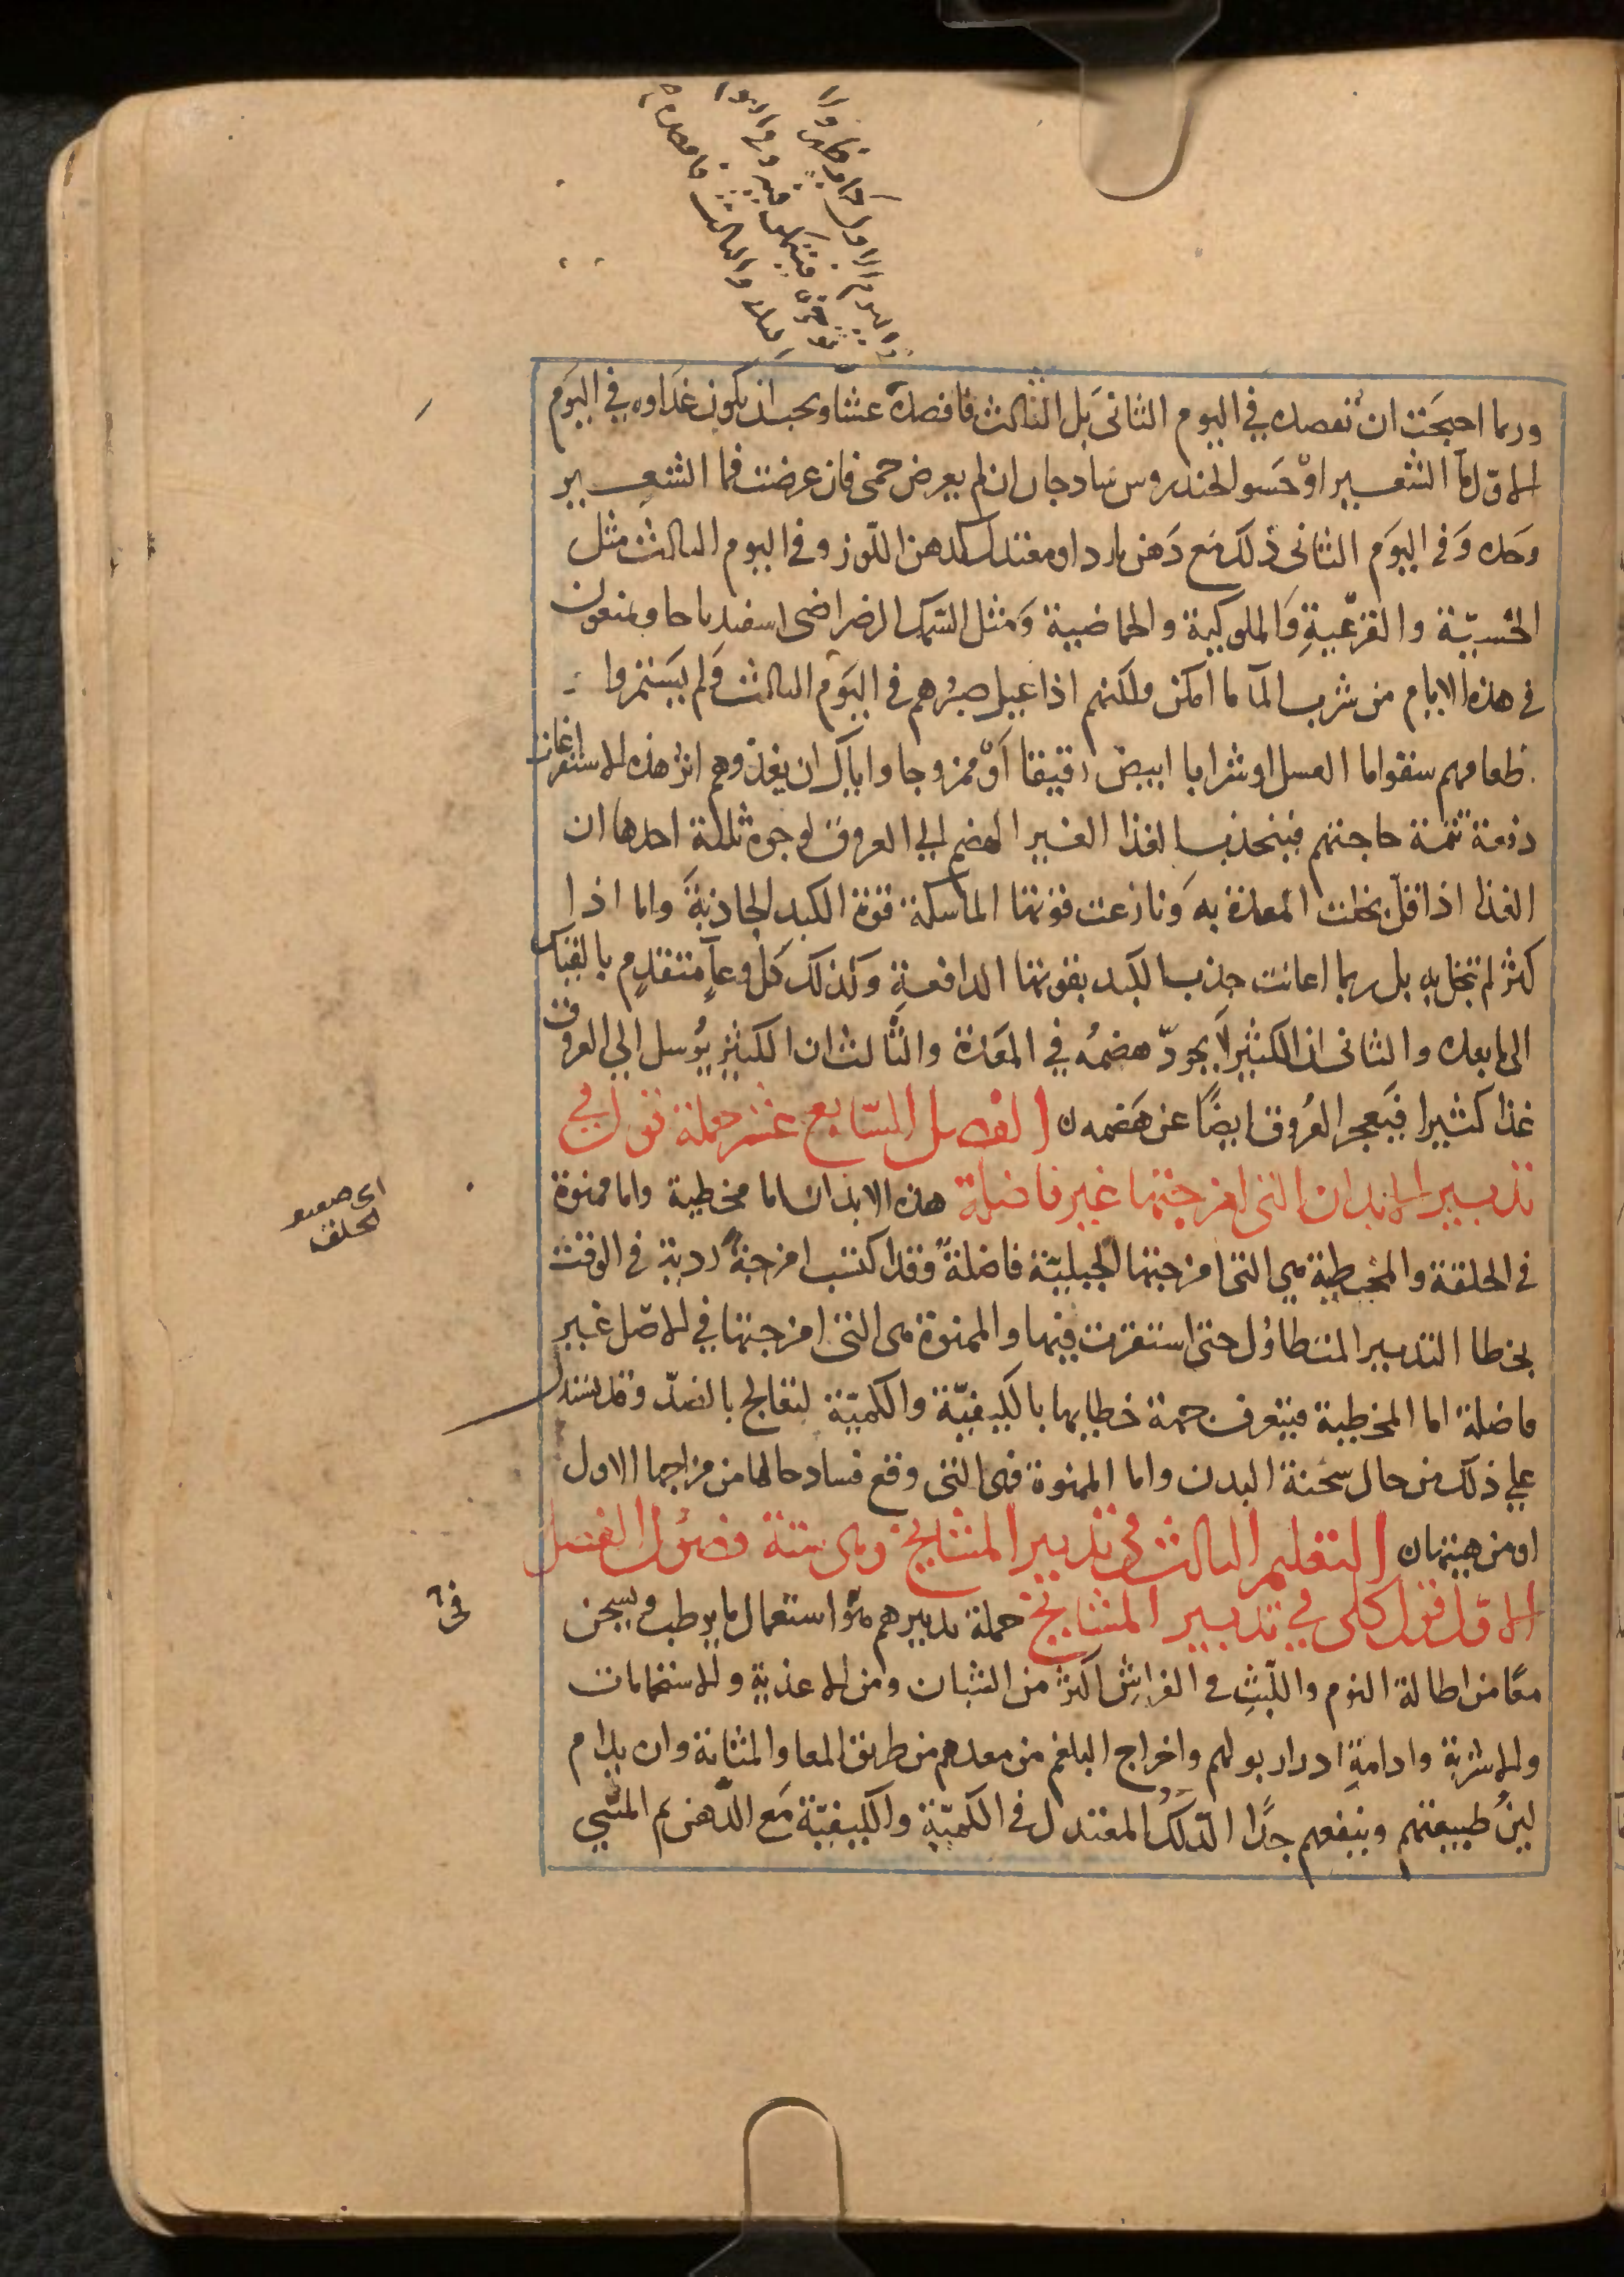 وربما احتجت ان تفصده في اليوم الثانى بل الثالث فافصده عشا ويجب ان يكون غداوه في اليوم
الاول ما الشعير او حسو الخندروس ساذجا ن ان لم يعرض حمى فان عرضت فما الشعير
وحده وفى اليوم الثانى ذلك مع دهن بارد او معتدل كدهن اللوز وفى اليوم الثالث مثل
الخسية والقرعية والملوكية والحماضية ومثل السمك الرضراضى اسفيدباجا ويمنعون
فى هذه الايام من شرب الما ما امكن ولكنهم اذا عيل صبرهم فى اليوم الثالث ولم يستمروا
طعامهم سقوا ما العسل او شرابا ابيض رقيقا او ممزوجا واياك ان يغذوهم اثر هذه الاستفراغات
دفعة تتمة حاجتهم فينجذب الغذا الغير الهضم الي العروق لوجوه ثلثة احدها ان
الغذا اذا قل بخلت المعدة به ونازعت قوتها الماسكة قوة الكبد الجاذبة واما اذا
كثر لم تبخل به بل ربما اعانت جذب الكبد بقوتها الدافعة وكذلك كل وعآ متقدم بالقياس
الى ما بعده والثانى ان الكثير لا يجود هضمه في المعدة والثالث ان الكثير يرسل الي العروق
غذا كثيرا فيعجز العروق ايضا عن هضمه ن الفصل السابع عشر جملة قول في
تدبير الابدان التى امزجتها غير فاضلة هذه الابدان اما مخطية واما ممنوة
فى الخلقة والمخطية هى التى امزجتها الجبلية فاضلة وقد اكتسب امزجة ردية فى الوقت
بخطا التدبير المتطاول حتى استقرت فيها والممنوة هى التى امزجتها في الاصل غير
فاضلة اما المخطية فيتعرف جهة خطايها بالكيفية والكمية لتعالج بالضد وقد يستدل
علي ذلك من حال سحنة البدن واما الممنوة فهى التى وقع فساد حالها من مزاجها الاول
او من هيئتها ن التعليم الثالث فى تدبير المشايخ وهى ستة فصول الفصل
الاول قول كلى في تدبير المشايخ جملة تدبيرهم هو استعمال ما يرطب ويسخن
معا من اطالة النوم واللبث فى الفراش اكثر من الشبان ومن الاغذية والاستحمامات
والاشربة وادامة ادرار بولهم واخراج البلغم من معدهم من طريق المعا والمثانة وان يدام
لين طبيعتهم وينفعهم جدا الدلك المعتدل فى الكمية والكيفية مع الدهن ثم المشي
اى
الخلقة